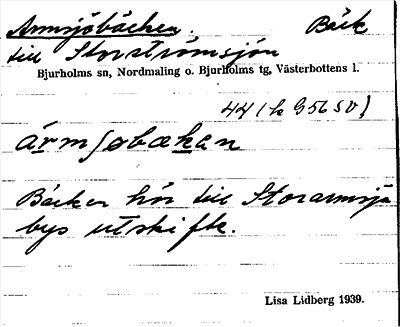 Armsjöbäcken. Bäck
till Storströmsjön
Bjurholms sn, Nordmaling o. Bjurholms tg, Västerbottens l.
44 (k G 56 SV)
ármsobækan
Bäcken hör till Storarmsjö
bys utskifte.
Lisa Lidberg 1939.